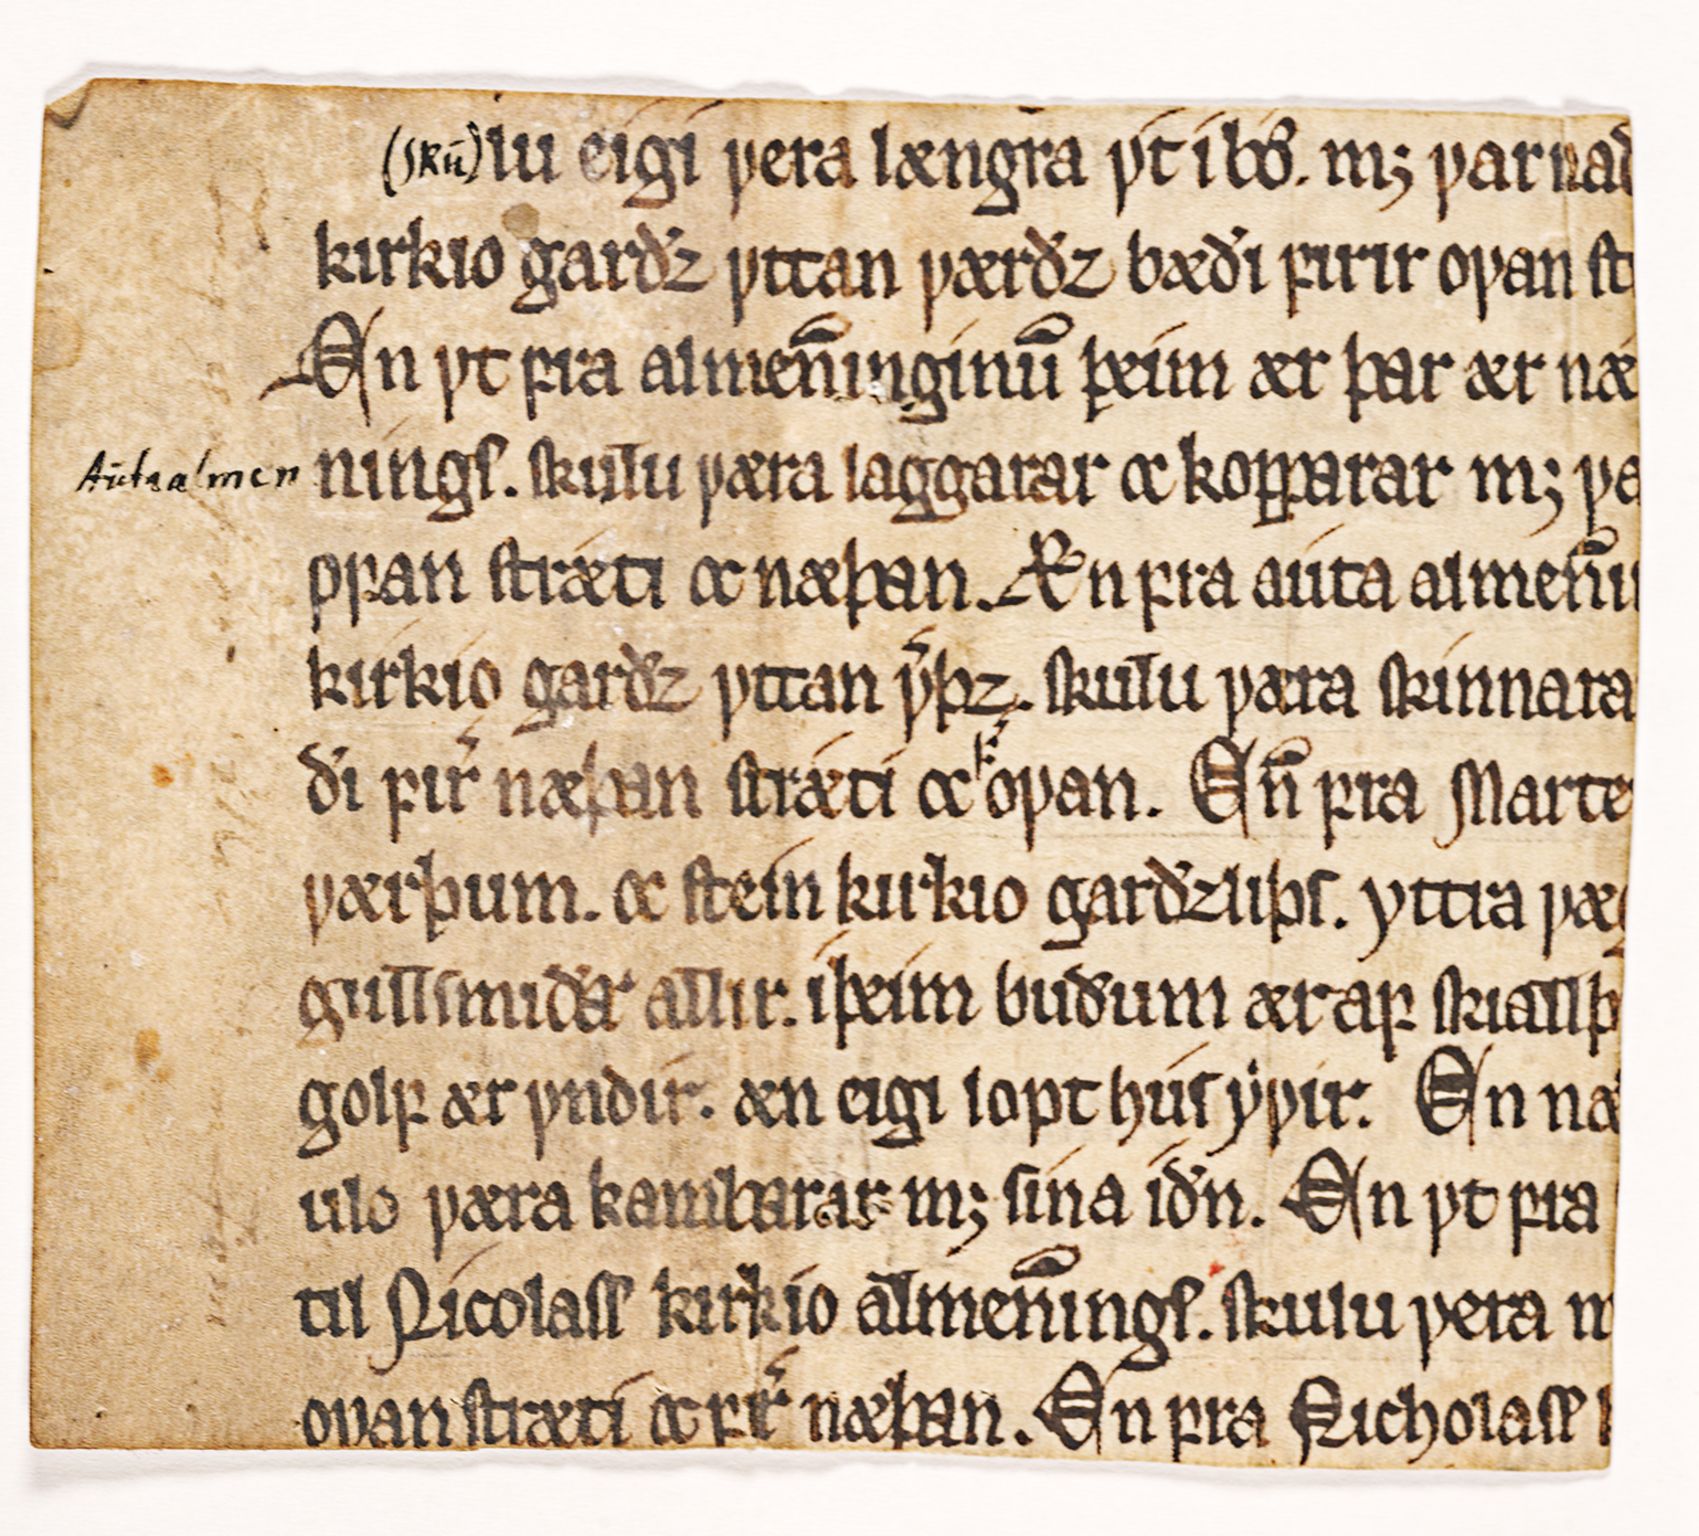 (skū)lu eigi ꝩera længra ꝩt i bø̄. mꝫ ꝩarnað
kirkio garðz ꝩttan ꝩærðz bæði ꝼirir oꝩan ſt
En ꝩt ꝼra almen̄inginū þeim ær þar ær næ
Aútaalmen ningſ. ſkulu ꝩæra laggarar oc kopparar mꝫ ꝩa
oꝼan ſtræti oc næþan. Æn ꝼra aúta almen̄i
kirkio garðz ꝩttan ꝩ̾þz. ſkulu ꝩæra ſkinnara
ði ꝼir̾ næþan ſtræti oc ꝼ̾ oꝩan. En̄ ꝼra Marte
ꝩærþum. oc ſtein kirkio garðzliþſ. yttra ꝩæg
gullſmiðar allir. iþeim buðum ær aꝼ ſkiallþ
golꝼ ær ꝩndir. æn eigi lopt húſ ẏꝩir. En næ
ulo ꝩæra kambarar mꝫ ſina iðn. En ꝩt ꝼra
til Nicolaſſ kirkio almen̄ingſ. ſkulu ꝩera m
oꝩan ſtræti oc ꝼir̾ næþan. En ꝼra Nicholaſſ k